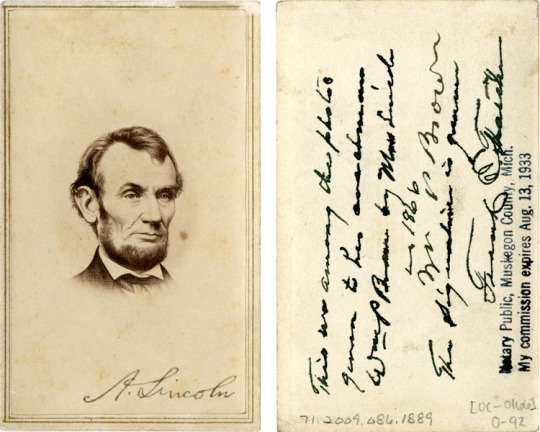 A. Lincoln
This was among the photos
given to his coachman
Wm P Brown by Mrs Lincoln
in 1866
Wm P Brown
The signature is genuine
Frank
Notary Public, Muskegon County, Mich.
My commission expires Aug. 13, 1933
71.2009.086.1889
O-92